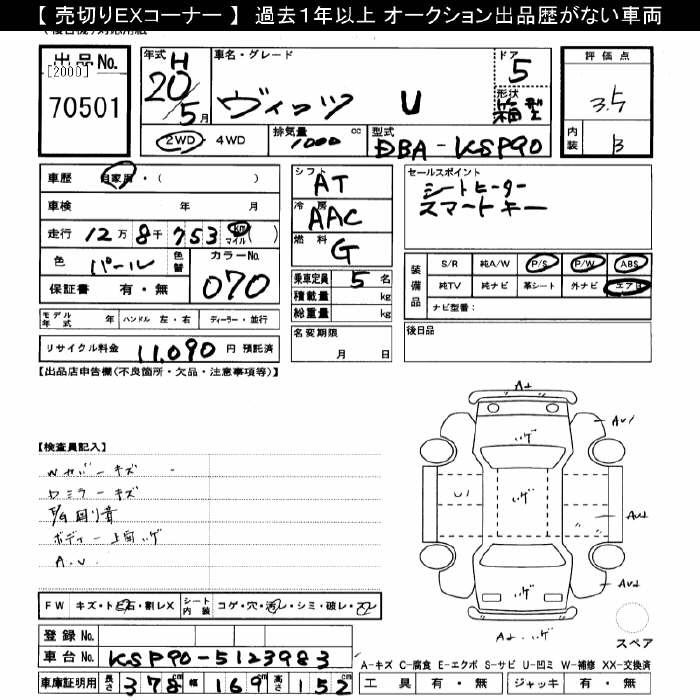 【 売切りEXコーナー 】 過去1年以上 オークション出品歴がない車両
出品No. [2000]
70501
年式 H 20/5月
車名・グレード
ヴィッツ U
ドア 5
形状 箱型
評価点 3.5
内装 B
2WD・4WD
排気量 1000 cc
型式 DBA-KSP90
車歴 自家用・( )
車検 年 月
走行 12万8千753 km マイル )
色 パール 色替
カラーNo. 070
保証書 有・無
シフト AT
冷房 AAC
燃料 G
乗車定員 5 名
積載量 kg
総重量 kg
セールスポイント
シートヒーター
スマートキー
装備品 S/R 純A/W P/S P/W ABS
純TV 純ナビ 革シート 外ナビ エアB
ナビ型番:
モデル年式 年 ハンドル 左・右 ディーラー・並行
名変期限 月 日
後日品
リサイクル料金 11,090 円 預託済
【出品店申告欄(不良箇所・欠品・注意事項等)】
【検査員記入】
Wカバーキズ
ドミラーキズ
F/G回り音
ボディー上面ハゲ
A.U.
A2
ハゲ
AU1
U1
ハゲ
AU2
ハゲ
AU2
A2.ハゲ
スペア
FW キズ・ト石・割レX シート内装 コゲ・穴・汚レ・シミ・破レ・スレ
登録No.
車台No. KSP90-5123983
車庫証明用 長さ 378 cm 幅 169 cm 高さ 152 cm
A-キズ C-腐食 E-エクボ S-サビ U-凹ミ W-補修 XX-交換済
工具 有・無 ジャッキ 有・無